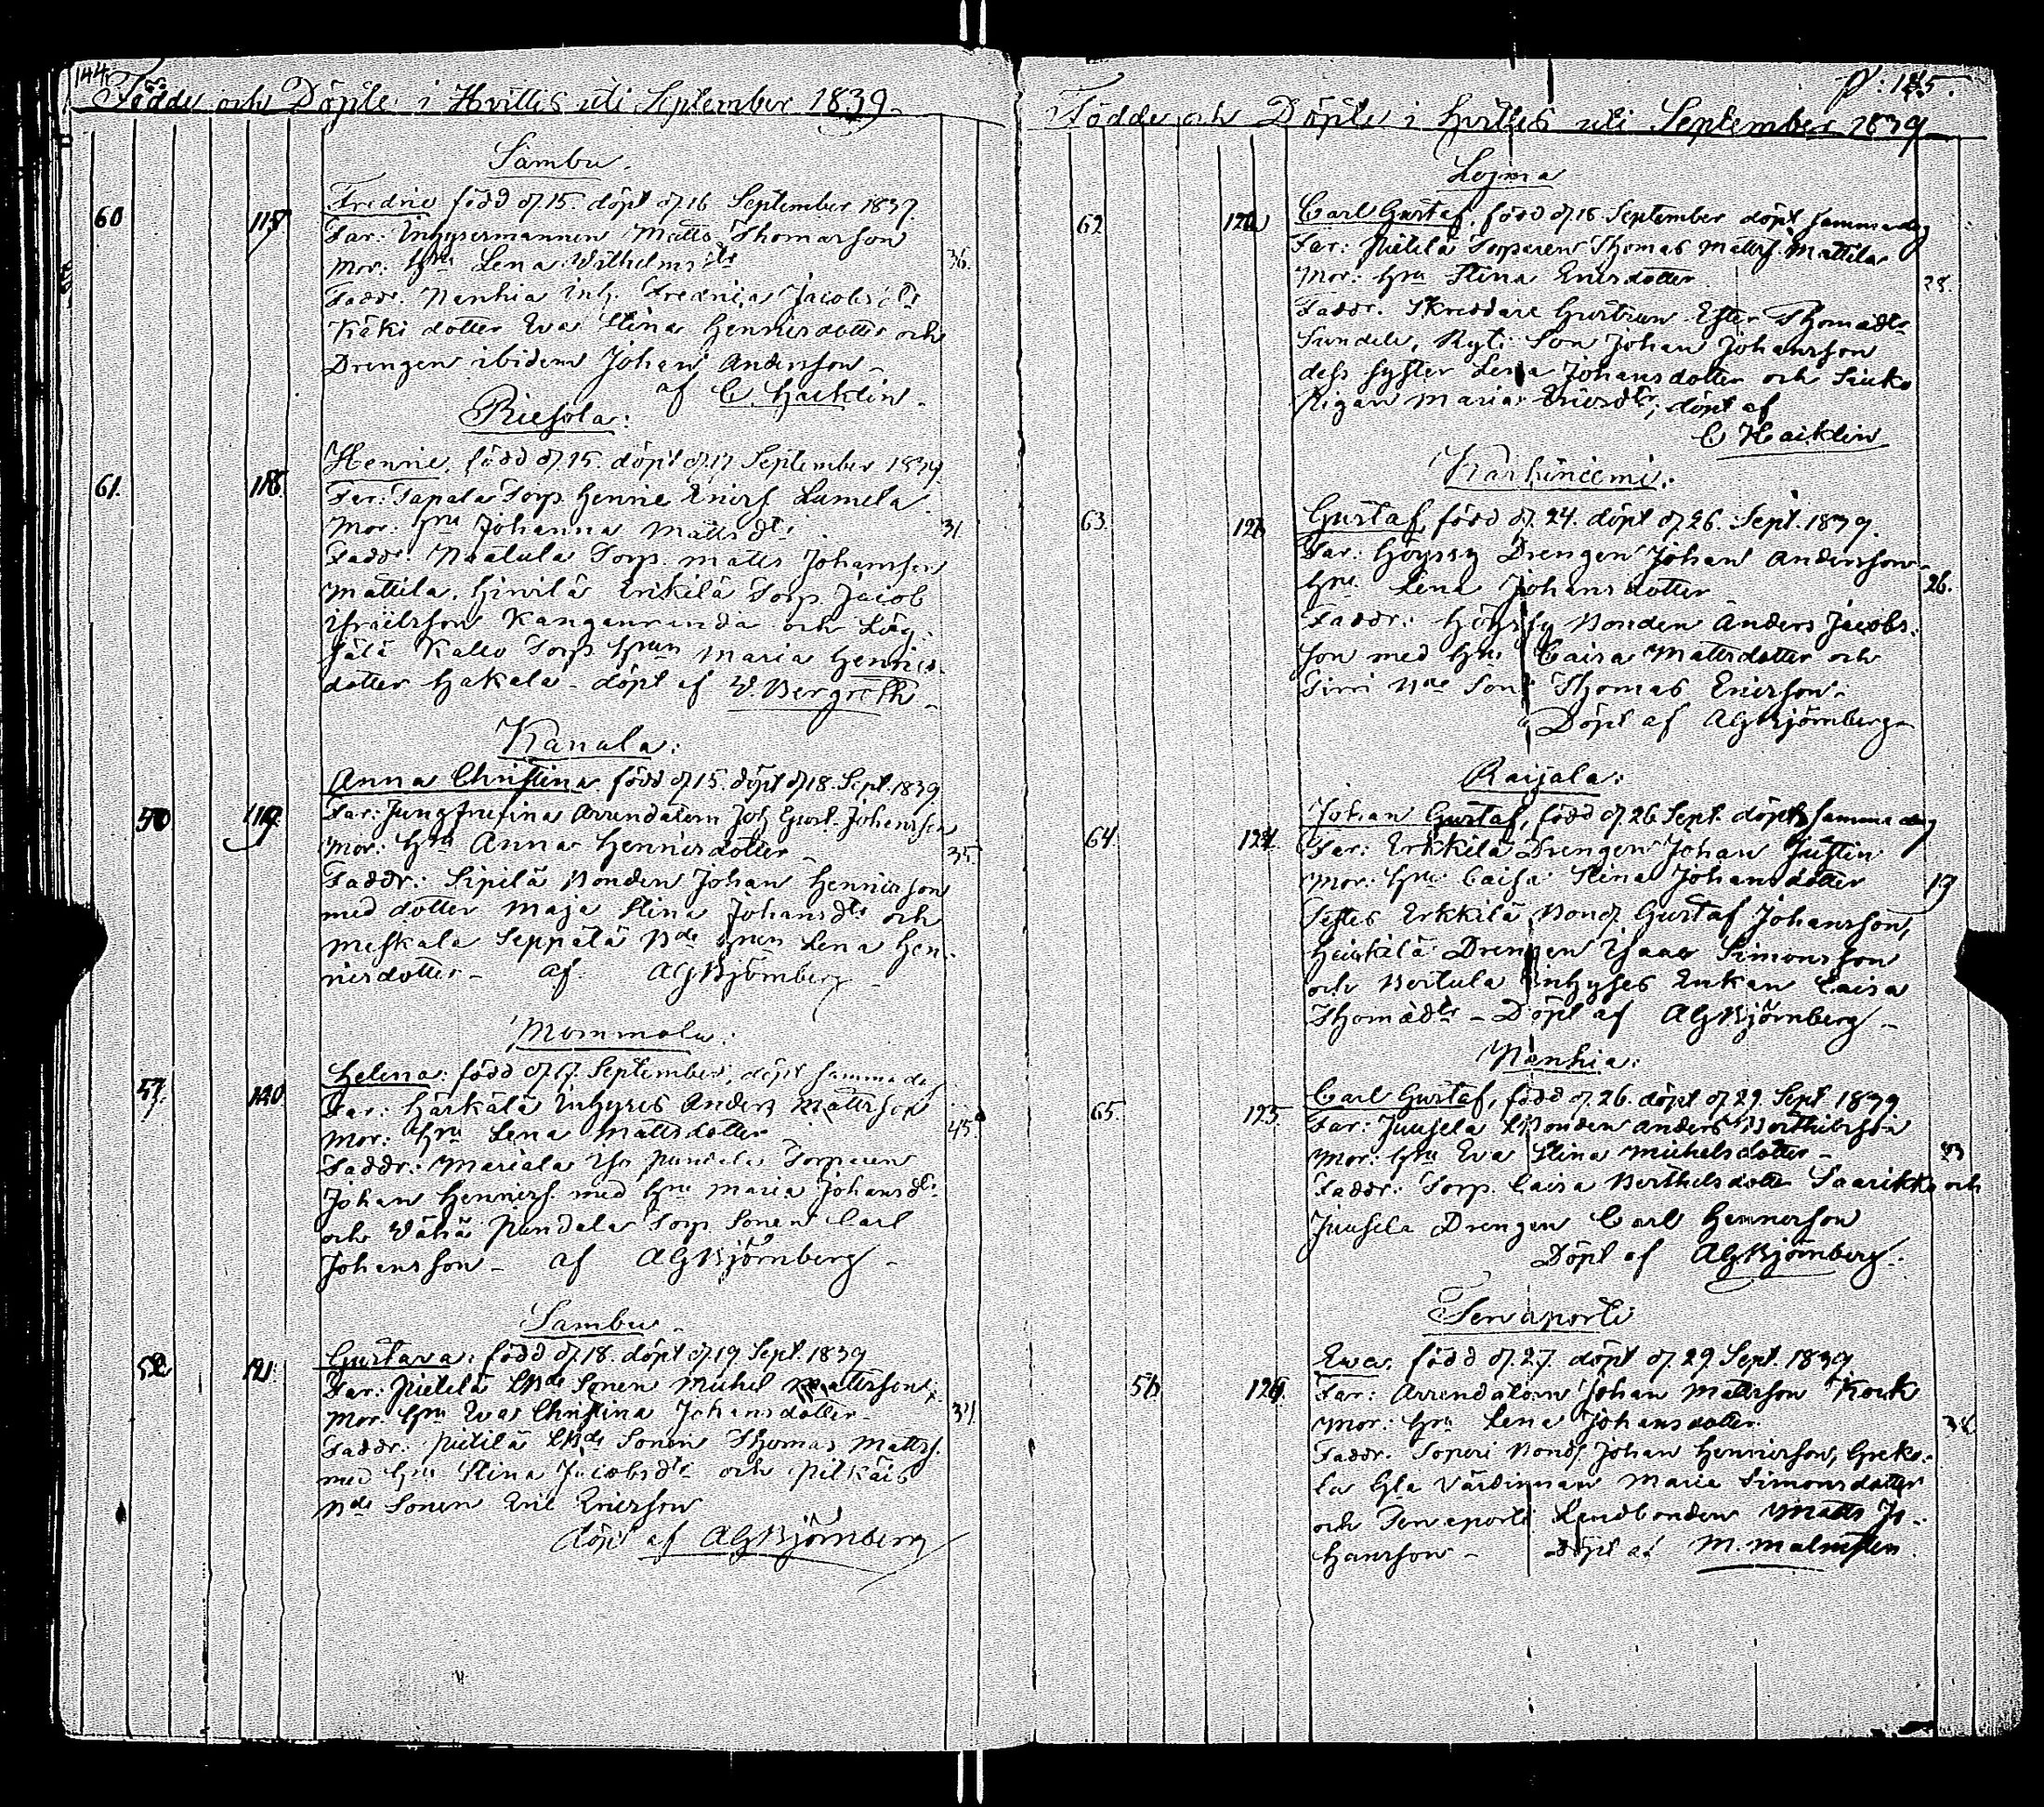 144.
Födde och Döpte i Hvittis uti September 1839.
Sambu.
60 117 Fredric född d 15. döpt d 16 September 1839.
Far: Inhysermannen Matts Thomasson
Mor: hru Lena Wilhelmsdr 36.
Faddr. Nanhia inh. Fredrica Jacobsdr
Käki dotter Eva Stina Henricsdotter och
Drengen ibidem Johan Andersson
af C. Haiklin
Riesola:
61. 118. Henric, född d 15. döpt d 17 September 1839.
Far: Tapala Torp. Henric Ericss. Lumela
Mor: hru Johanna Mattsdr 31
Faddr. Naatula Torp. Matts Johansson
Mattila, Erikilä Torp. Jacob
Israëlsson Kanganranda och
Torp. hrun Maria Henrics
dotter Hakala - döpt af W. Bergroth
Kanala:
50 119. Anna Christina född d 15. döpt d 18. Sept. 1839.
Far: Arrendatorn Joh Gust. Johansson
Mor: hru Anna Henricsdotter 35.
Faddr: Sipilä Bonden Johan Henricsson
med dotter Maja Stina Johansdr och
Meskala Seppälä Bde hrun Lena Hen-
ricsdotter - af AGBjörnberg
Mommola:
51. 120. Helena: född d 17. September, döpt samma dag
Far: Härkälä Inhyses Anders Mattsson
Mor: hru Lena Mattsdotter 45.
Faddr: Mariala Iso Pundala Torparen
Johan Henricss. med hru Maria Johansdr
och Vähä Pundala Torp Sonen Carl
Johansson - af AGBjörnberg
Sambu
52 121. Gustava: född d 18. döpt d 19 Sept. 1839
Far: Pietilä LBde Sonen Michel Mattsson
Mor: hru Eva Christina Johansdotter 34.
Faddr: Pietilä LBde Sonen Thomas Mattss.
med hru Stina Jacobsdr och
Bde Sonen Eric Ericsson
döpt af AGBjörnberg
P: 145.
Födde och Döpte i Hvittis uti September 1839
Lojma
62 122 Carl Gustaf, född d 18 September döpt samma dag
Far: Pietilä Torparen Thomas Mattss. Mattila
Mor: hru Stina Ericsdotter 28.
Faddr. Skreddare Hustrun Ester Thomædr
Sundell, Ryti Son Johan Johansson
dess syster Lena Johansdotter och
Pigan Maria Ericsdr; döpt af
C Haiklin
Karhiniemi:
63. 123 Gustaf, född d. 24. döpt d 26. Sept. 1839.
Far: Höyssy Drengen Johan Andersson
hru Lena Johansdotter 26.
Faddr: Höyssy Bonden Anders Jacobs-
son med hru Caisa Mattsdotter och
Bde Son Thomas Ericsson
Döpt af AGBjörnberg
Raijala:
64 124. Johan Gustaf, född d 26 Sept. döpt samma dag
Far: Erkkilä Drengen Johan Justin
Mor: hru Caisa Stina Johansdotter 19
Testes Erkkilä Bond. Gustaf Johansson,
Heikkilä Drengen Isaac Simonsson
och Bertula Inhyses Enkan Caisa
Thomædr - Döpt af AGBjörnberg
Nanhia:
65. 125. Carl Gustaf, född d 26. döpt d 29. Sept 1839
Far: Juusela LBonden Anders Berthilsson
Mor: hru Eva Stina Michelsdotter
Faddr: Torp. Caisa Berthelsdotter Saarikko och
Juusela Drengen Carl Henricsson
Döpt af AGBjörnberg
Tervaporti
126. Eva, född d. 27. döpt d 29 Sept. 1839
Far: Arrendatorn Johan Mattsson Kock
Mor: hru Lena Johansdotter
Faddr. Soperi Bond. Johan Henricsson,
Gla Värdinnan Maria Simonsdotter
och Tervaporti Landbonden Matts Jo-
hansson - Döpt af M. Malmsten